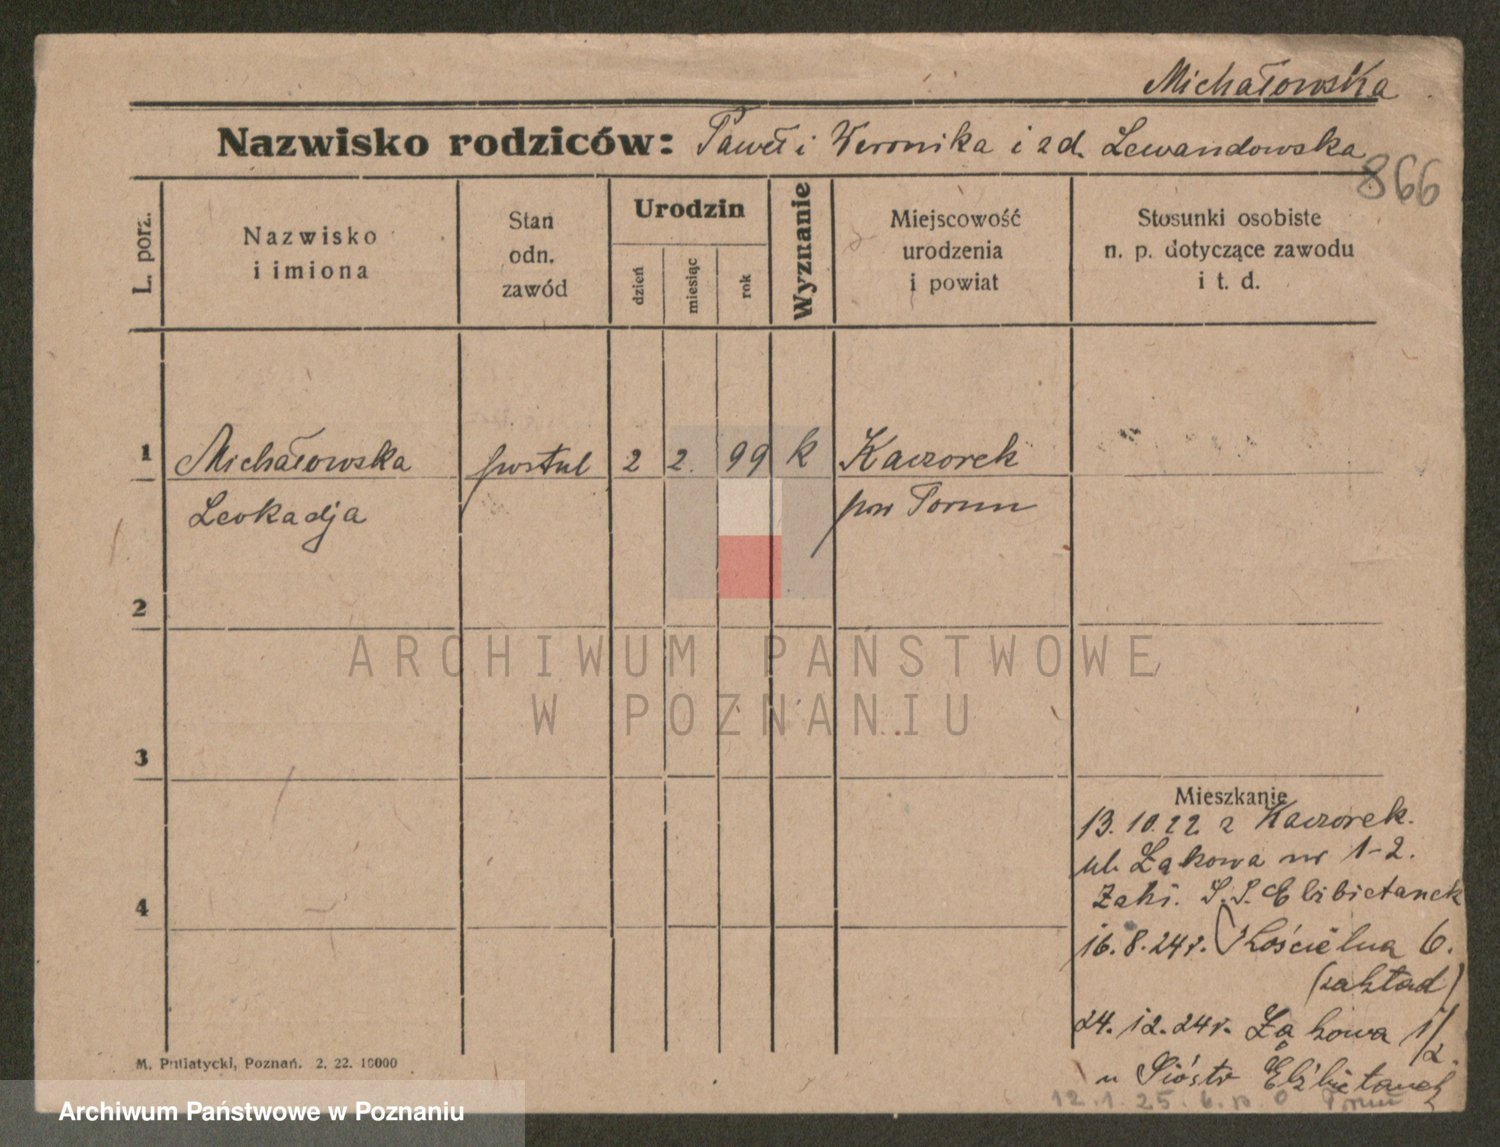 Michałowska
Nazwisko rodziców: Paweł i Weronika i zd. Lewandowska
866
L. porz.
Nazwisko
i imiona
Stan
odn.
zawód
Urodzin
dzień
miesiąc
rok
Wyznanie
Miejscowość
urodzenia
i powiat
Stosunki osobiste
n. p. dotyczące zawodu
i t. d.
1 Michałowska postul 2 2. 99 k Kaczorek
Leokadja pow Toruń
2
3
4
ARCHIWUM PAŃSTWOWE
W POZNANIU
Mieszkanie
13.10.22 z Kaczorek.
ul. Łąkowa nr 1-2.
Zakł. S.S. Elżbietanek
16.8.24r. Kościelna 6.
(zakład)
24.12.24r. Łąkowa 1/2.
u Sióstr Elżbietanek
12.1.25. Toruń
M. Putiatycki, Poznań. 2. 22. 10000
Archiwum Państwowe w Poznaniu